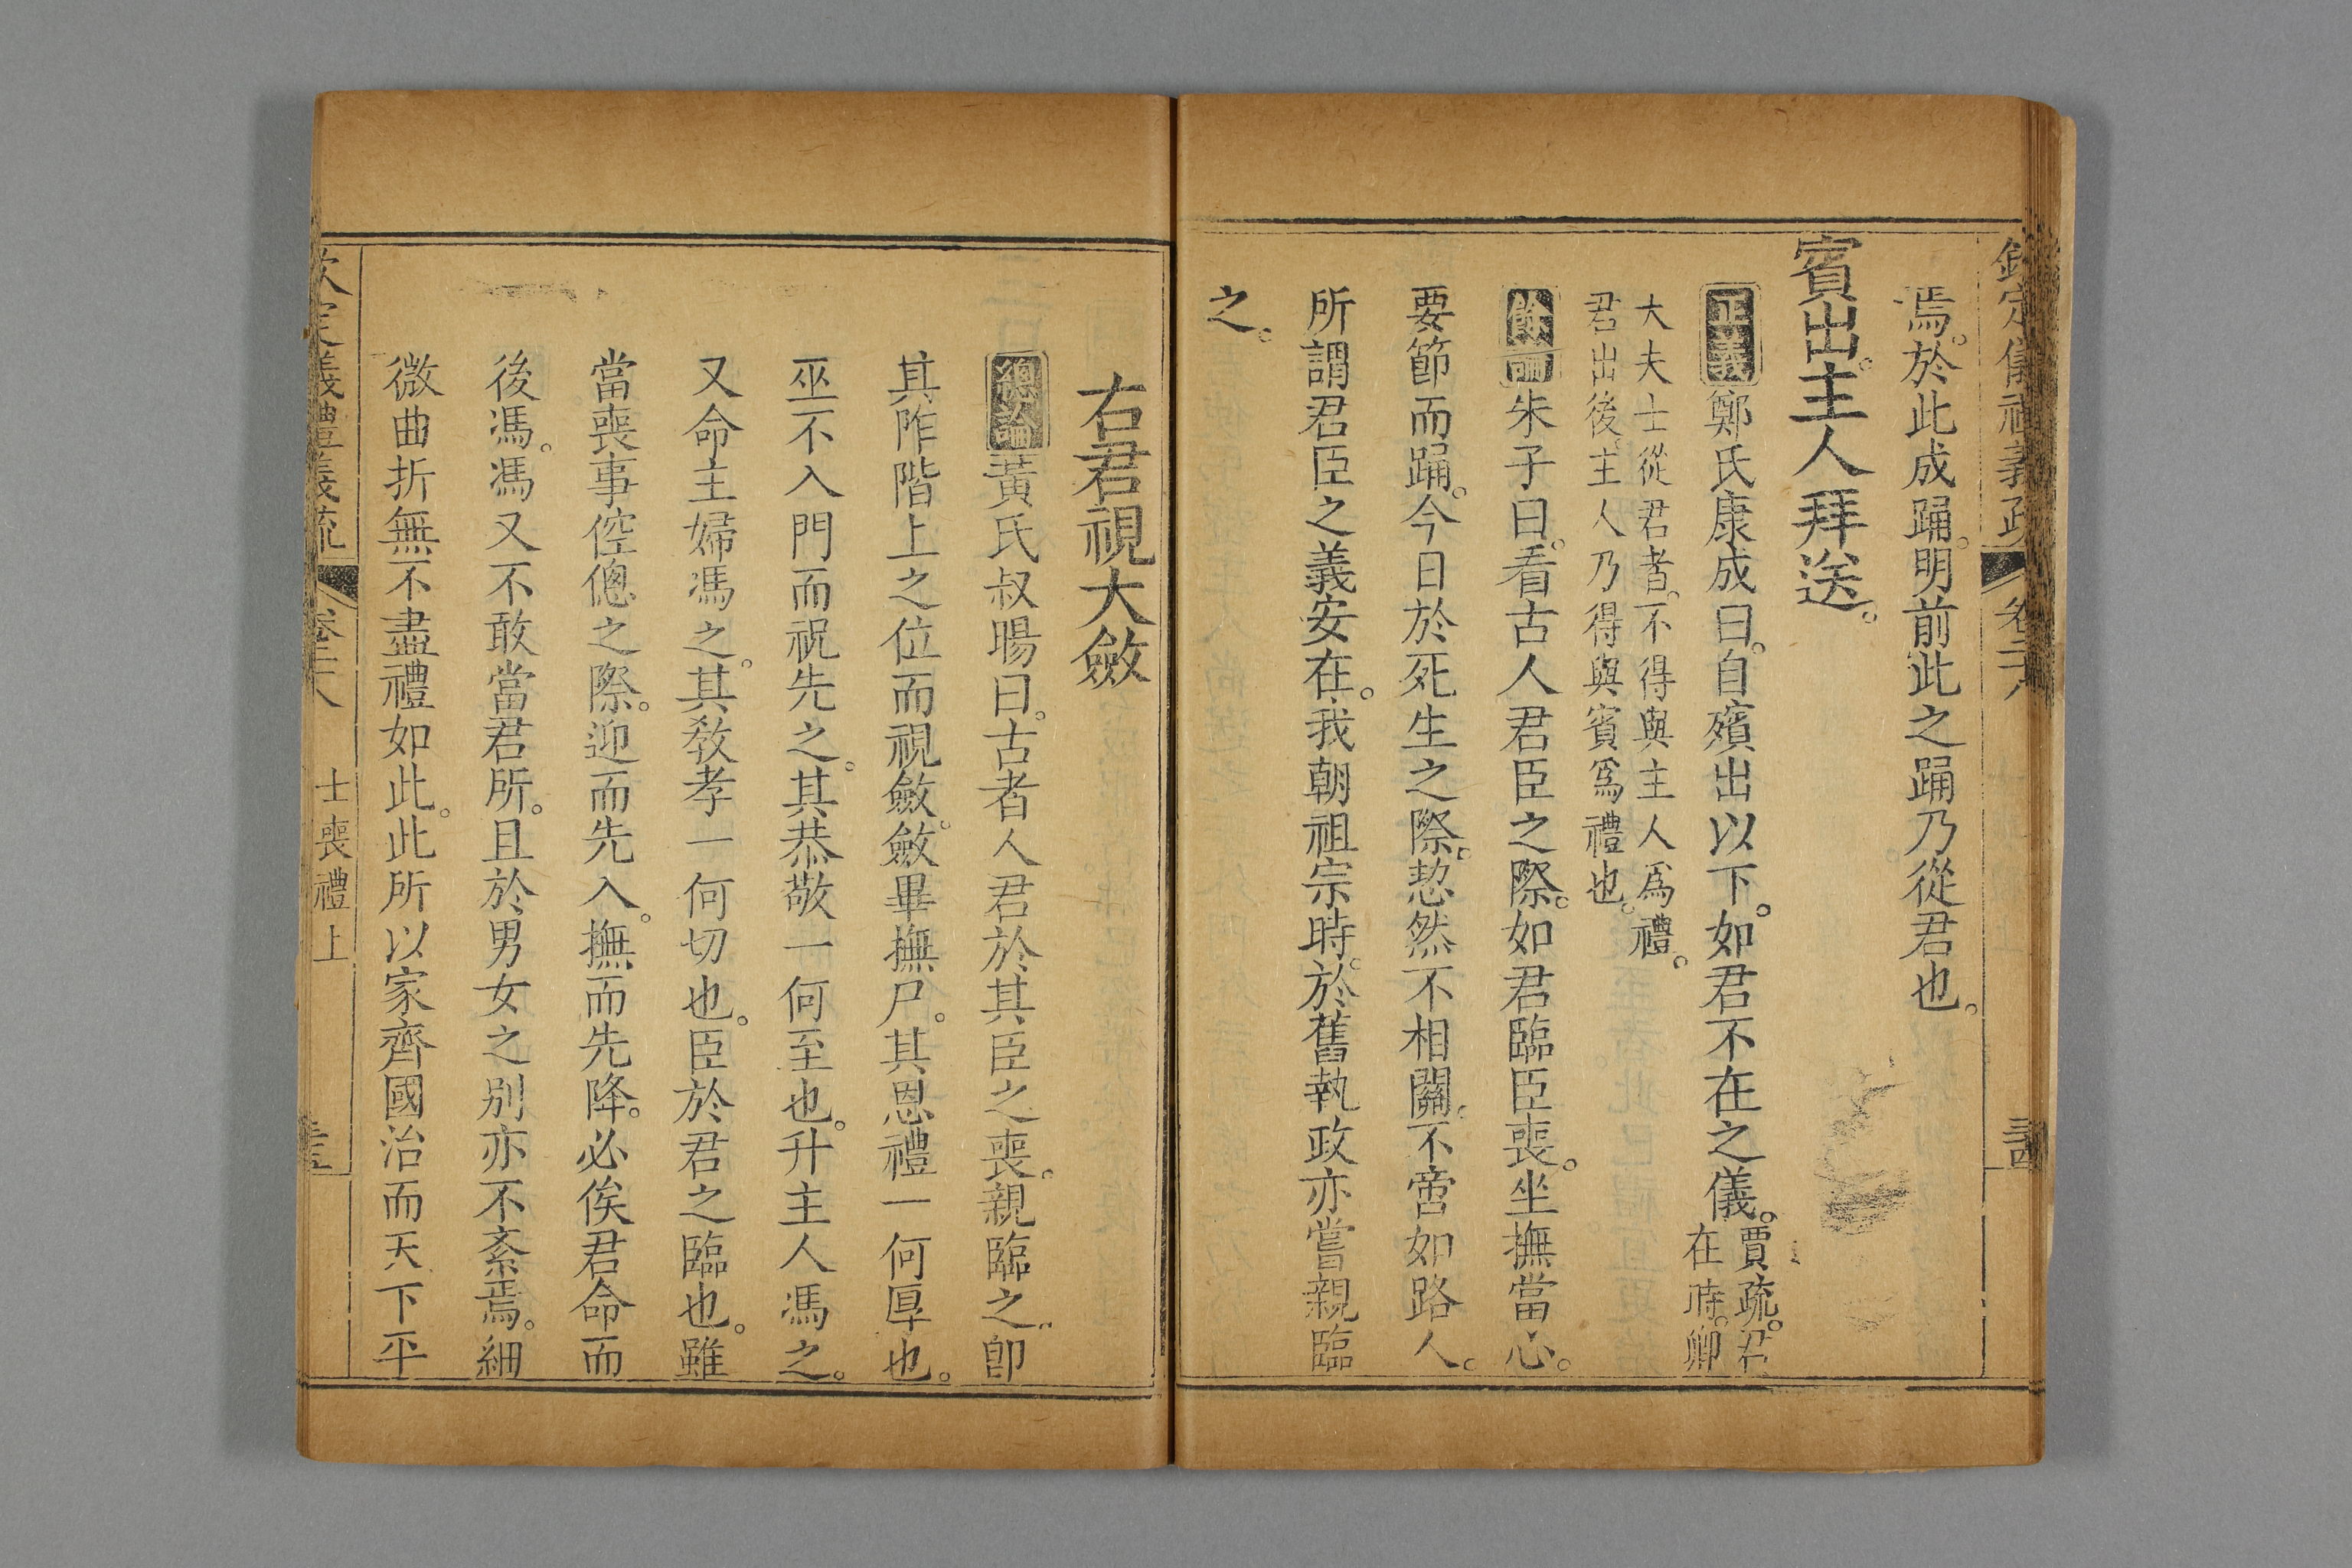 欽定儀禮義疏 卷二十八 三四
焉。於此成踊。明前此之踊乃從君也。
賓出。主人拜送。
正義鄭氏康成曰。自殯出以下。如君不在之儀。賈疏。君
在時。卿
大夫士從君者。不得與主人爲禮。
君出後。主人乃得與賓爲禮也。
餘論朱子曰。看古人君臣之際。如君臨臣喪。坐撫當心。
要節而踊。今日於死生之際。恝然不相關。不啻如路人。
所謂君臣之義安在。我朝祖宗時。於舊執政亦嘗親臨
之。
右君視大斂
總論黃氏叔暘曰。古者人君於其臣之喪。親臨之。卽
其阼階上之位而視斂。斂畢撫尸。其恩禮一何厚也。
巫不入門而祝先之。其恭敬一何至也。升主人馮之。
又命主婦馮之。其敎孝一何切也。臣於君之臨也。雖
當喪事倥傯之際。迎而先入。撫而先降。必俟君命而
後馮。馮又不敢當君所。且於男女之別亦不紊焉。細
微曲折無不盡禮如此。此所以家齊國治而天下平
欽定儀禮義疏 卷二十八 士喪禮上